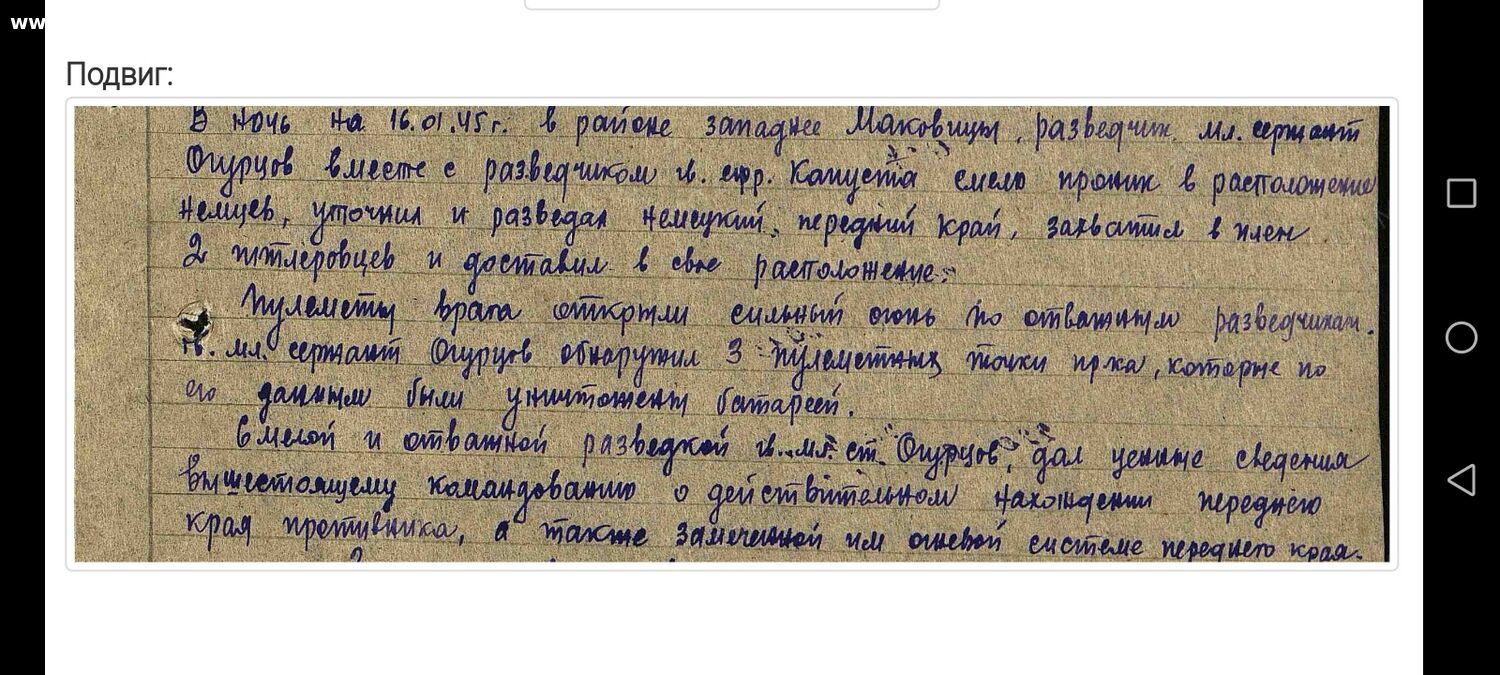 ww
Подвиг:
В ночь на 16.01.45г. в районе западнее Маковицы, разведчик мл. сержант
Огурцов вместе с разведчиком гв. ефр. Капуста смело проник в расположение
немцев, уточнил и разведал немецкий передний край, захватил в плен
2 гитлеровцев и доставил в свое расположение.
Пулеметы врага открыли сильный огонь по отважным разведчикам.
Гв. мл. сержант Огурцов обнаружил 3 пулеметных точки пр-ка, которые по
его данным были уничтожены батареей.
Смелой и отважной разведкой гв. мл. ст. Огурцов, дал ценные сведения
вышестоящему командованию о действительном нахождении переднего
края противника, а также замеченной им огневой системе переднего края.